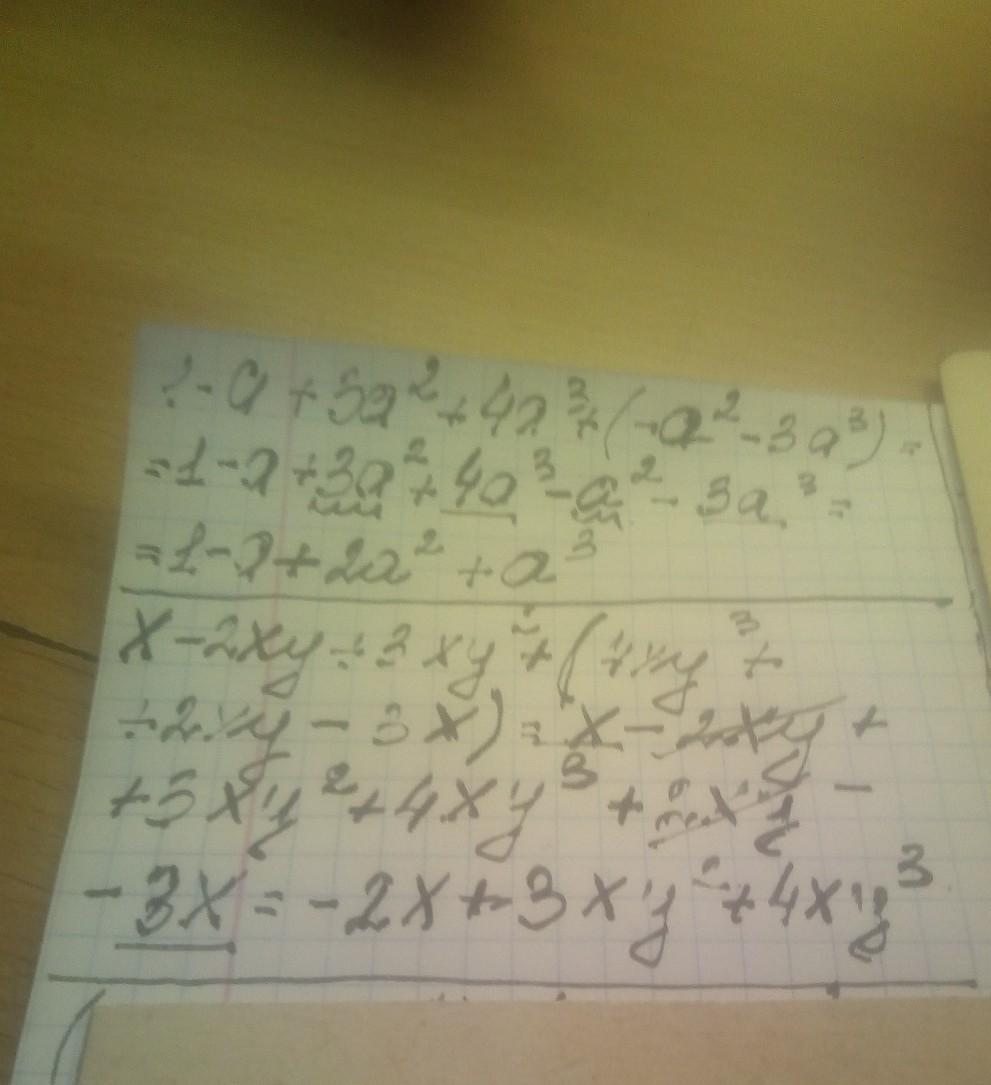 1 - a + 3a² + 4a³ + (-a² - 3a³) =
= 1 - a + 3a² + 4a³ - a² - 3a³ =
= 1 - a + 2a² + a³
x - 2xy + 3xy² + (4xy³ +
+ 2xy - 3x) = x - 2xy +
+ 3xy² + 4xy³ + 2xy -
- 3x = -2x + 3xy² + 4xy³